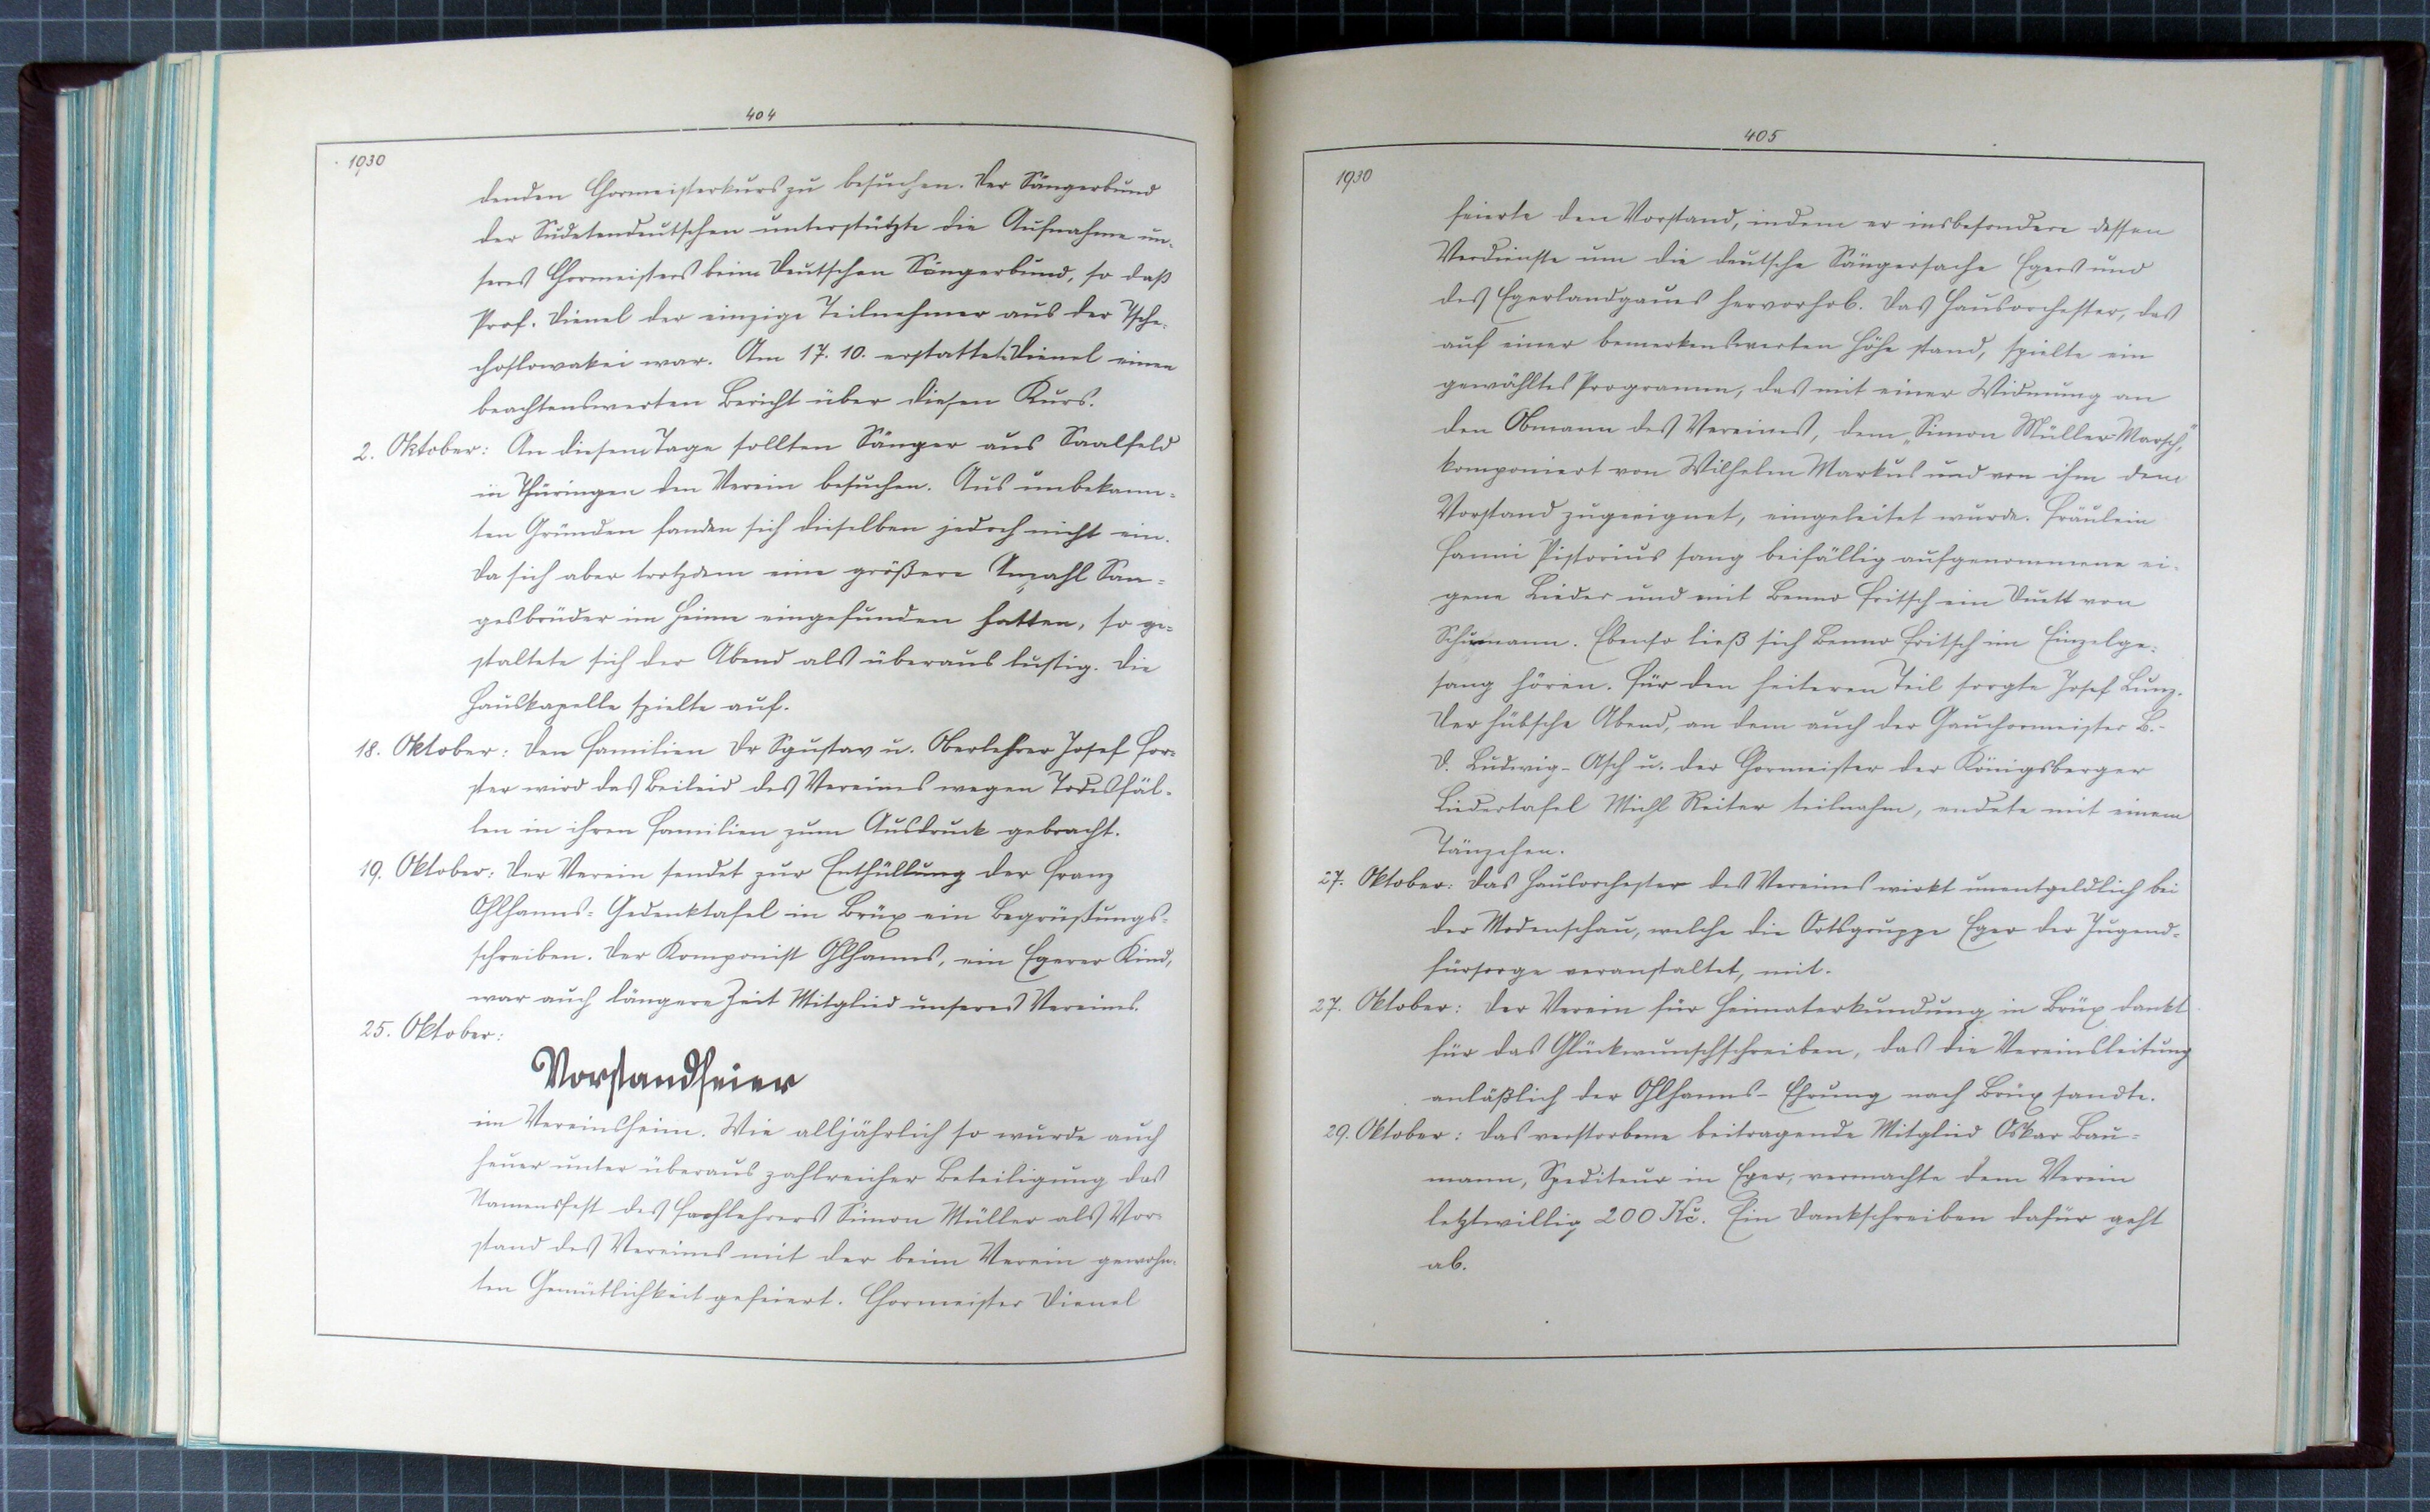 404
1930
denden Chormeisterkurs zu besuchen. Der Sängerbund
der Sudetendeutschen unterstützte die Aufnahme un-
seres Chormeisters beim Deutschen Sängerbund, so daß
Prof. Dienel der einzige Teilnehmer aus der Tsche-
choslowakei war. Am 17.10. erstattete Dienel einen
beachtenswerten Bericht über diesen Kurs.
2. Oktober: An diesem Tage sollten Sänger aus Saalfeld
in Thüringen den Verein besuchen. Aus unbekann-
ten Gründen fanden sich dieselben jedoch nicht ein.
Da sich aber trotzdem eine größere Anzahl San-
gesbrüder im Heime eingefunden hatten, so ge-
staltete sich der Abend als überaus lustig. Die
Hauskapelle spielte auf.
18. Oktober: Den Familien Dr Sgustav u. Oberlehrer Josef For-
ster wird das Beileid des Vereines wegen Todesfäl-
len in ihren Familien zum Ausdruck gebracht.
19. Oktober: Der Verein sendet zur Enthüllung der Franz
Ohlhanns-Gedenktafel in Brüx ein Begrüßungs-
schreiben. Der Komponist Ohlhanns, ein Egerer Kind,
war auch längere Zeit Mitglied unseres Vereines.
25. Oktober:
Vorstandfeier
im Vereinsheim. Wie alljährlich so wurde auch
heuer unter überaus zahlreicher Beteiligung das
Namensfest des Fachlehrers Simon Müller als Vor-
stand des Vereines mit der beim Verein gewohn-
ten Gemütlichkeit gefeiert. Chormeister Dienel
405
1930
feierte den Vorstand, indem er insbesondere dessen
Verdienste um die deutsche Sängersache Egers und
des Egerlandgaues hervorhob. Das Hausorchester, das
auf einer bemerkenswerten Höhe stand, spielte ein
gewähltes Programm, das mit einer Widmung an
den Obmann des Vereines, dem „Simon Müller-Marsch,"
komponiert von Wilhelm Markus und von ihm dem
Vorstand zugeeignet, eingeleitet wurde. Fräulein
Fanni Pistorius sang beifällig aufgenommene ei-
gene Lieder und mit Benno Fritsch ein Duett von
Schumann. Ebenso ließ sich Benno Fritsch im Einzelge-
sang hören. Für den heiteren Teil sorgte Josef Lunz.
Der hübsche Abend, an dem auch der Gauchormeister B.-
D. Ludwig-Asch u. der Chormeister der Königsberger
Liedertafel Michl Reiter teilnahm, endete mit einem
Tänzchen.
27. Oktober: Das Hausorchester des Vereines wirkt unentgeldlich bei
der Modenschau, welche die Ortsgruppe Eger der Jugend-
fürsorge veranstaltet, mit.
27. Oktober: Der Verein für Heimaterkundung in Brüx dankt
für das Glückwunschschreiben, das die Vereinsleitung
anläßlich der Ohlhanns-Ehrung nach Brüx sandte.
29. Oktober: Das verstorbene beitragende Mitglied Oskar Bau-
mann, Spediteur in Eger, vermachte dem Verein
letztwillig 200 Kč. Ein Dankschreiben dafür geht
ab.